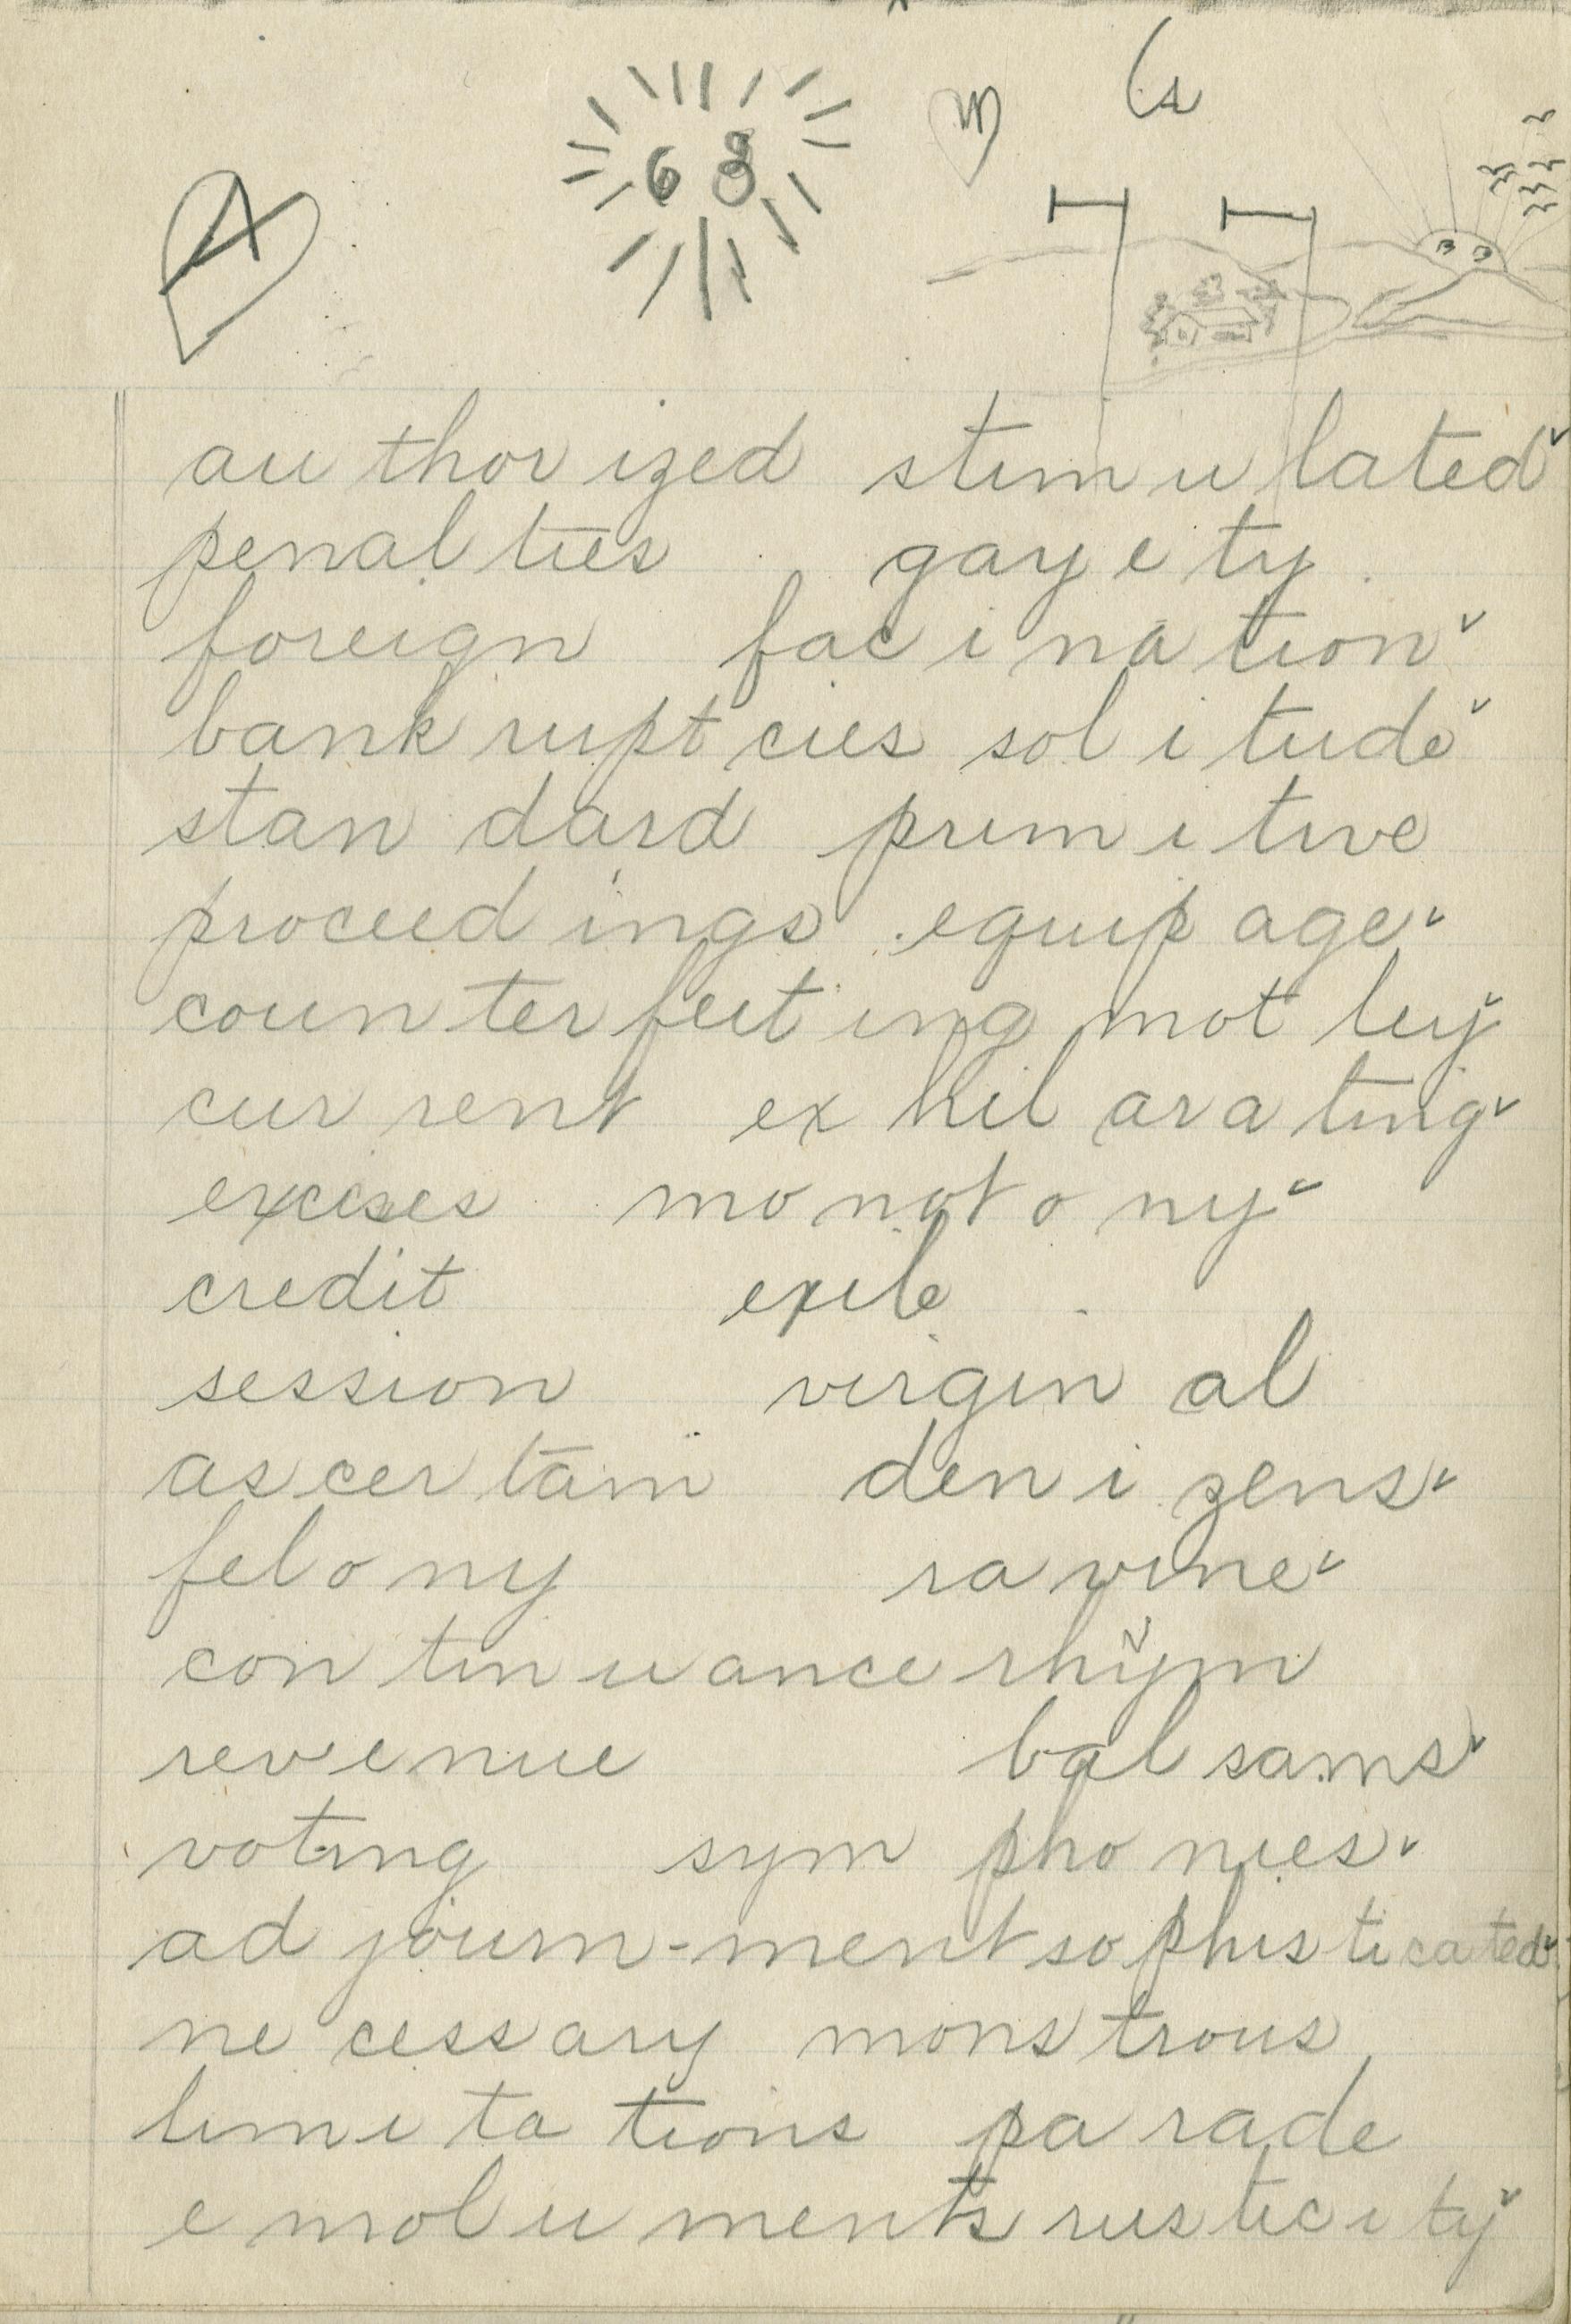 A
6 8
m
authorized stimulated
penalties gayety
foreign facination
bankruptcies solitude
standard primitive
proceedings equipage
counterfeiting motley
current exhilarating
excises monotony
credit exile
session virginal
ascertain denizens
felony ravine
continuance rhym
revenue balsams
voting symphonies
adjourn-ment sophisticated
necessary monstrous
limitations parade
emoluments rusticity